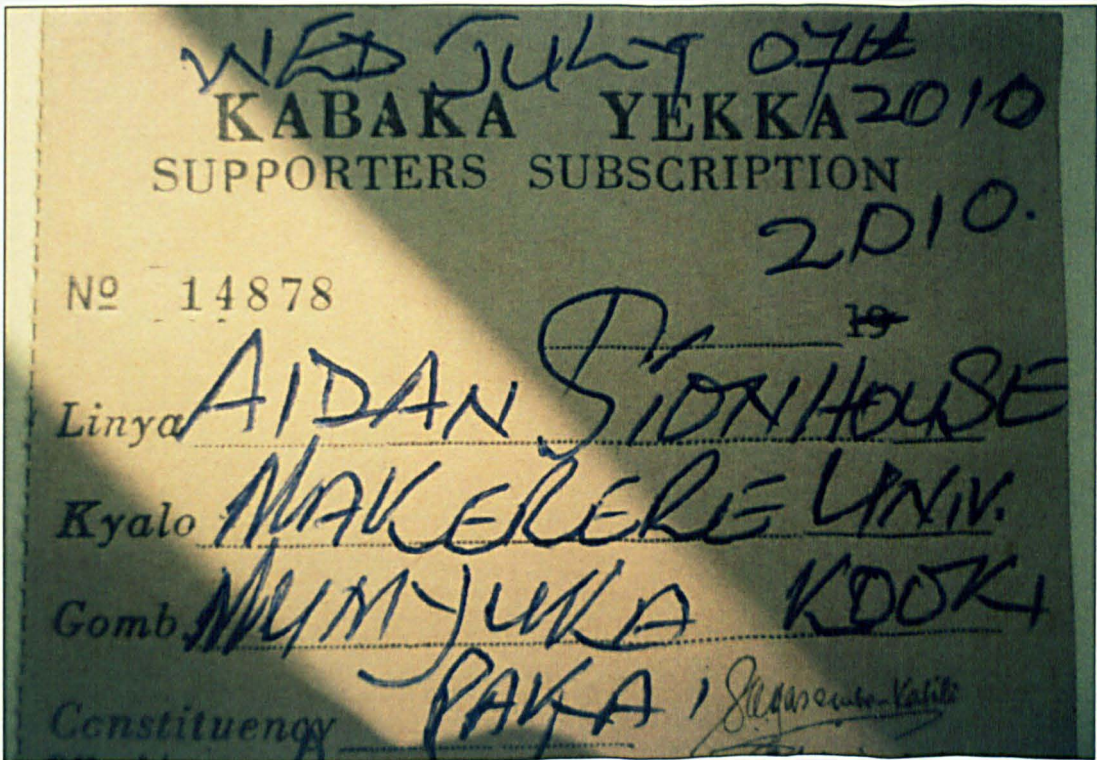 WED JULY 07th
KABAKA YEKKA 2010
SUPPORTERS SUBSCRIPTION
2010.
Nº 14878
19
Linya AIDAN STONHOUSE
Kyalo MAKERERE UNIV.
Gomb. MUMYUKA KOOKI
Constituency PAKA,